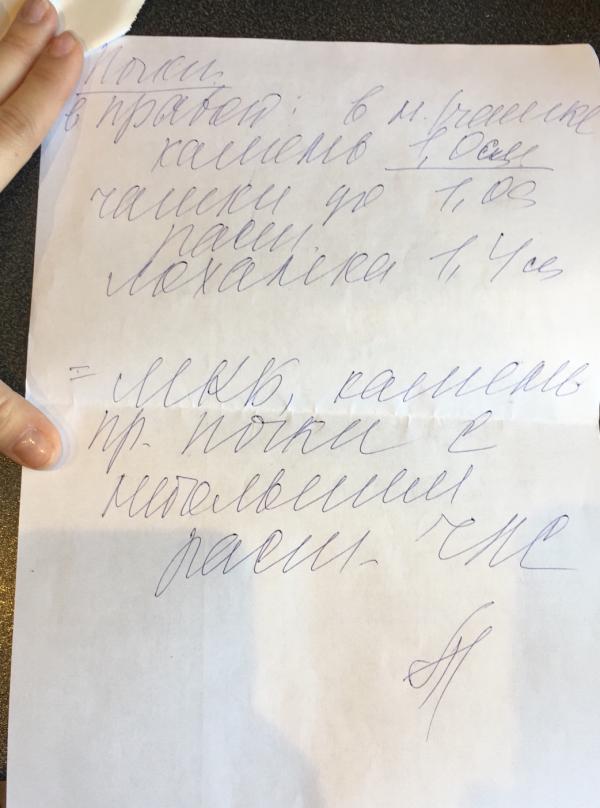 Почки
в правой: в н/чашке
камень 1,0см
чашки до 1,0см
расш.
лоханка 1,4см
= МКБ, камень
пр. почки с
небольшим
расш. ЧЛС